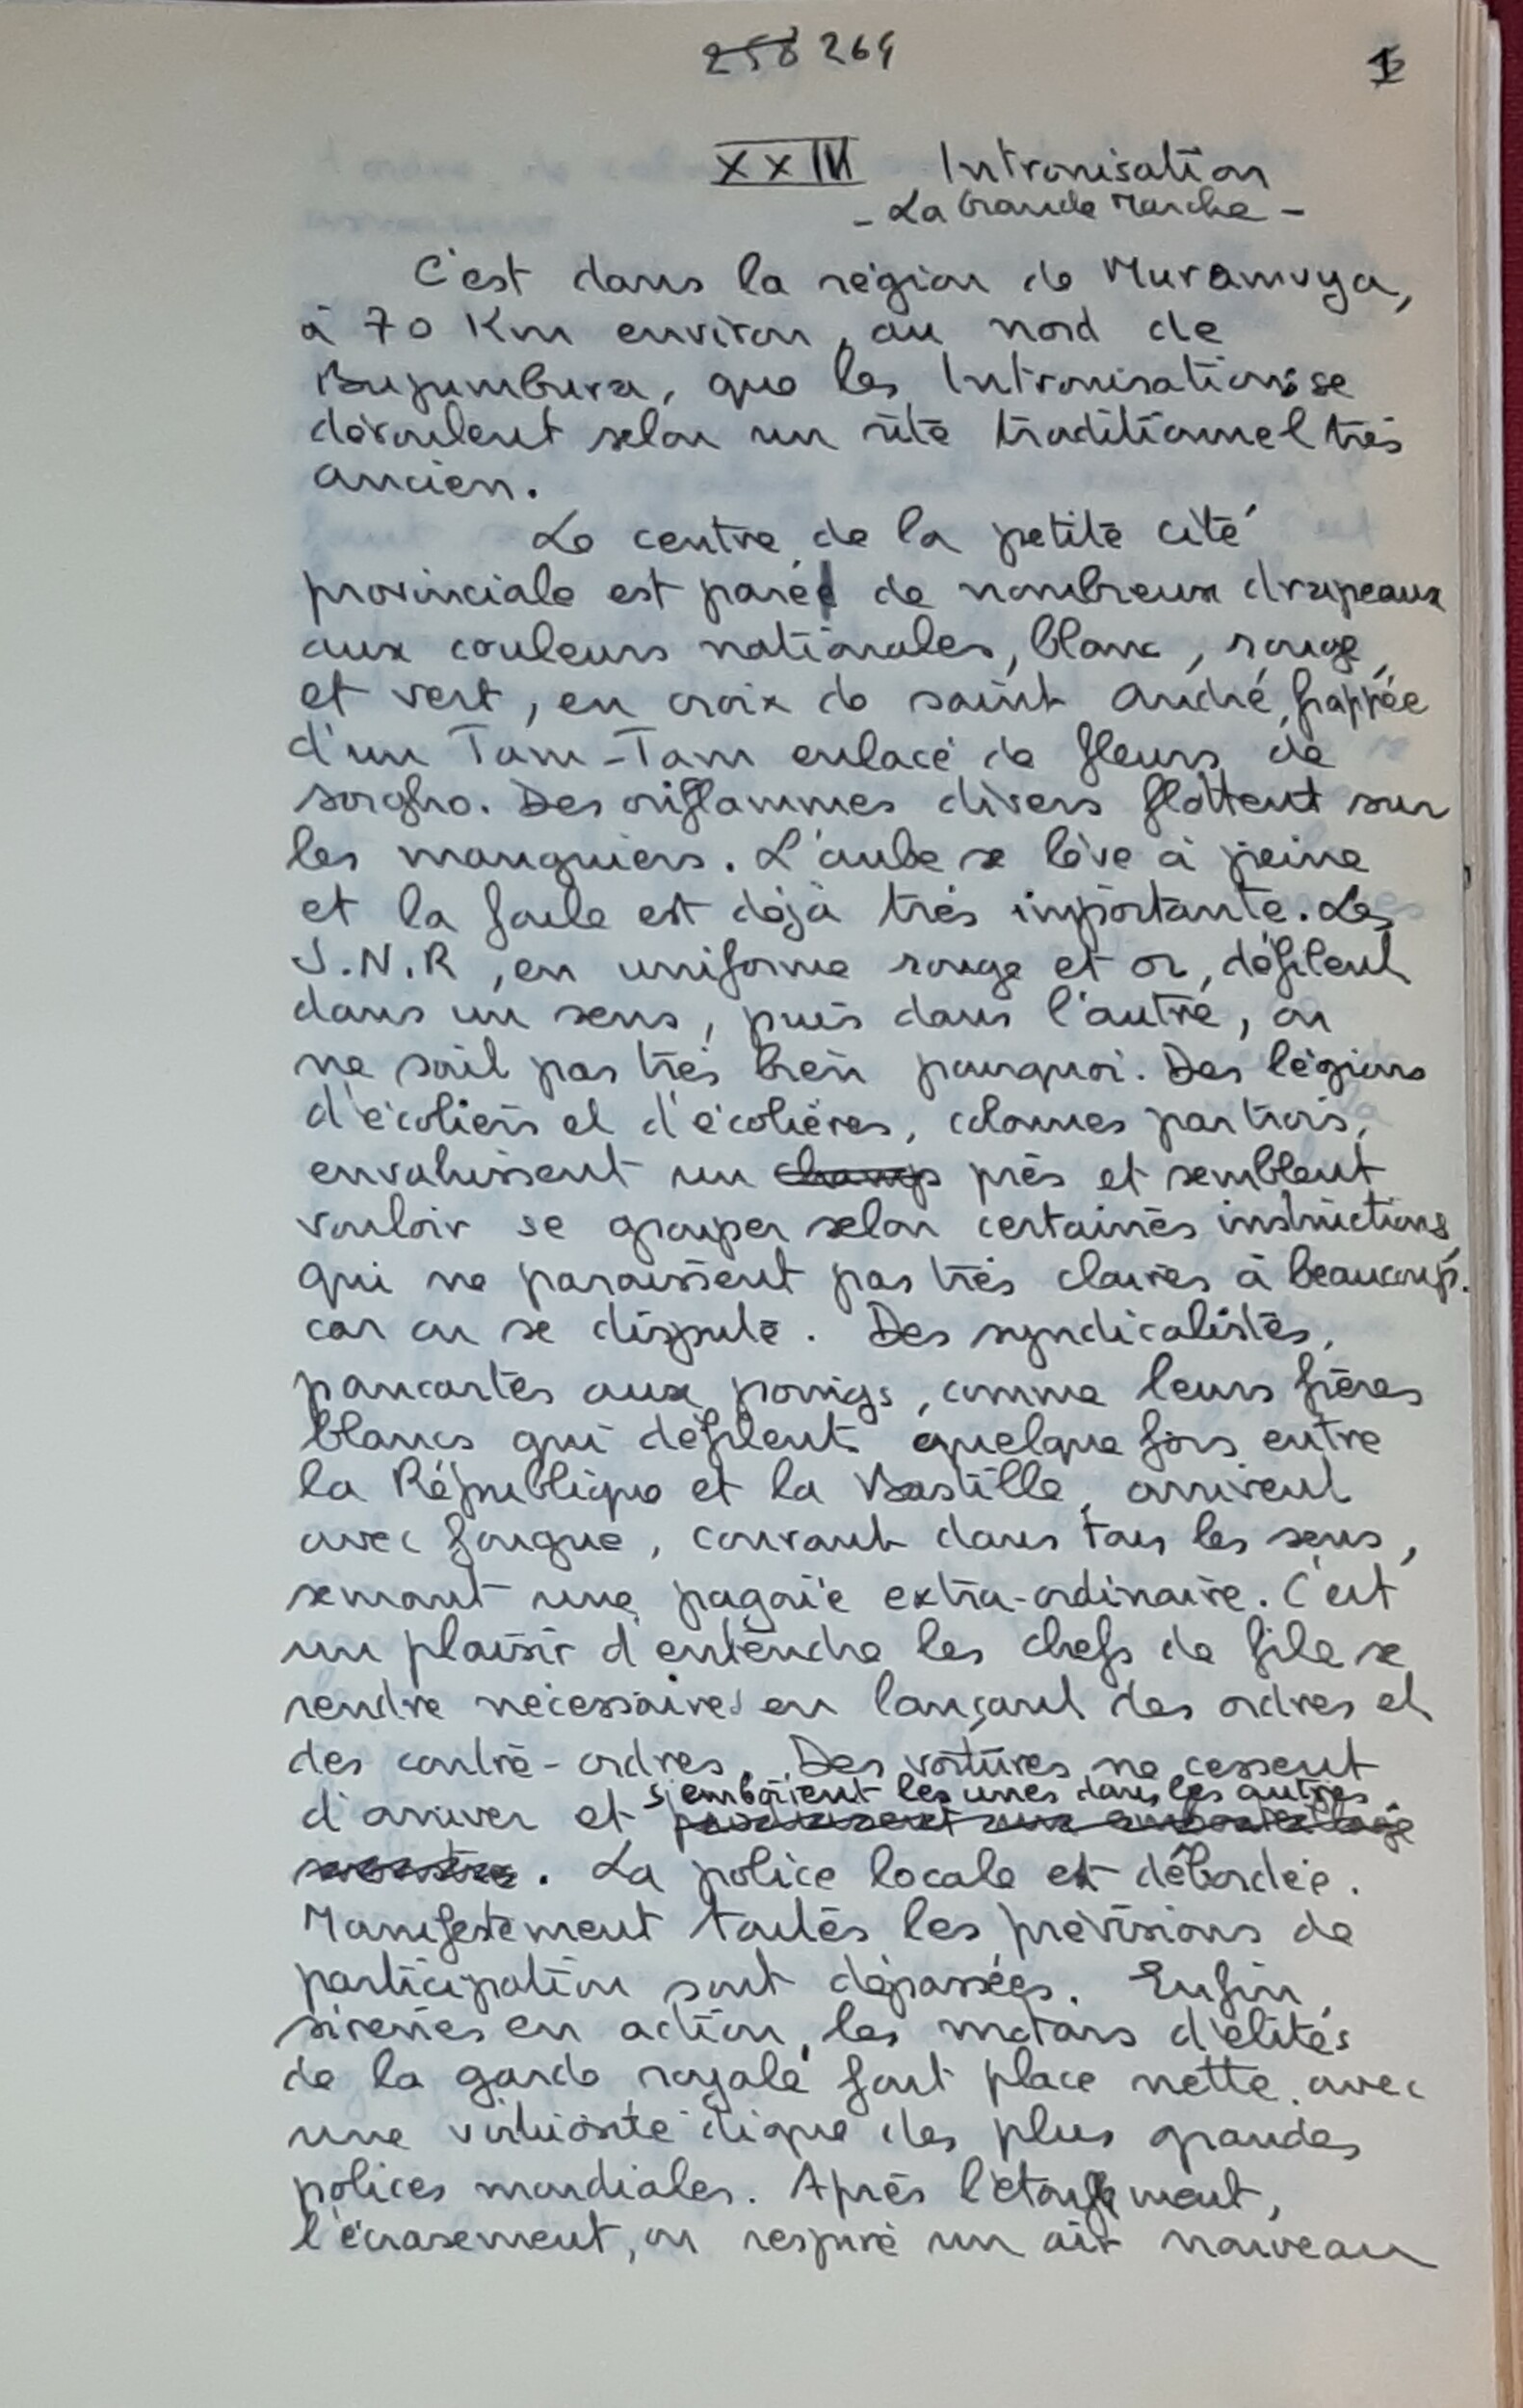 258 264
1
XXIII Intronisation
- La Grande Marche -
C'est dans la région de Muramvya,
à 70 Km environ, au nord de
Bujumbura, que les Intronisations se
déroulent selon un rite traditionnel très
ancien.
Le centre de la petite cité
provinciale est paré de nombreux drapeaux
aux couleurs nationales, blanc, rouge,
et vert, en croix de saint André, frappée
d'un Tam-Tam enlacé de fleurs de
sorgho. Des oriflammes divers flottent sur
les manguiers. L'aube se lève à peine
et la foule est déjà très importante. Les
J.N.R, en uniforme rouge et or, défilent
dans un sens, puis dans l'autre, on
ne sait pas très bien pourquoi. Des légions
d'écoliers et d'écolières, colonnes par trois,
envahissent un champ près et semblent
vouloir se grouper selon certaines instructions,
qui ne paraissent pas très claires à beaucoup.
car on se dispute. Des syndicalistes,
pancartes aux poings, comme leurs frères
blancs qui défilent quelque fois entre
la République et la Bastille, arrivent
avec fougue, courant dans tous les sens,
semant une pagaïe extra-ordinaire. C'est
un plaisir d'entendre les chefs de file se
rendre nécessaires en lançant des ordres et
des contre-ordres. Des voitures ne cessent
s'emboîtent les unes dans les autres
d'arriver et
. La police locale est débordée.
Manifestement toutes les prévisions de
participation sont dépassées. Enfin,
sirènes en action, les motars d'élites
de la garde royale font place nette avec
une virtuosité digne des plus grandes
polices mondiales. Après l'étouffement,
l'écrasement, on respire un air nouveau